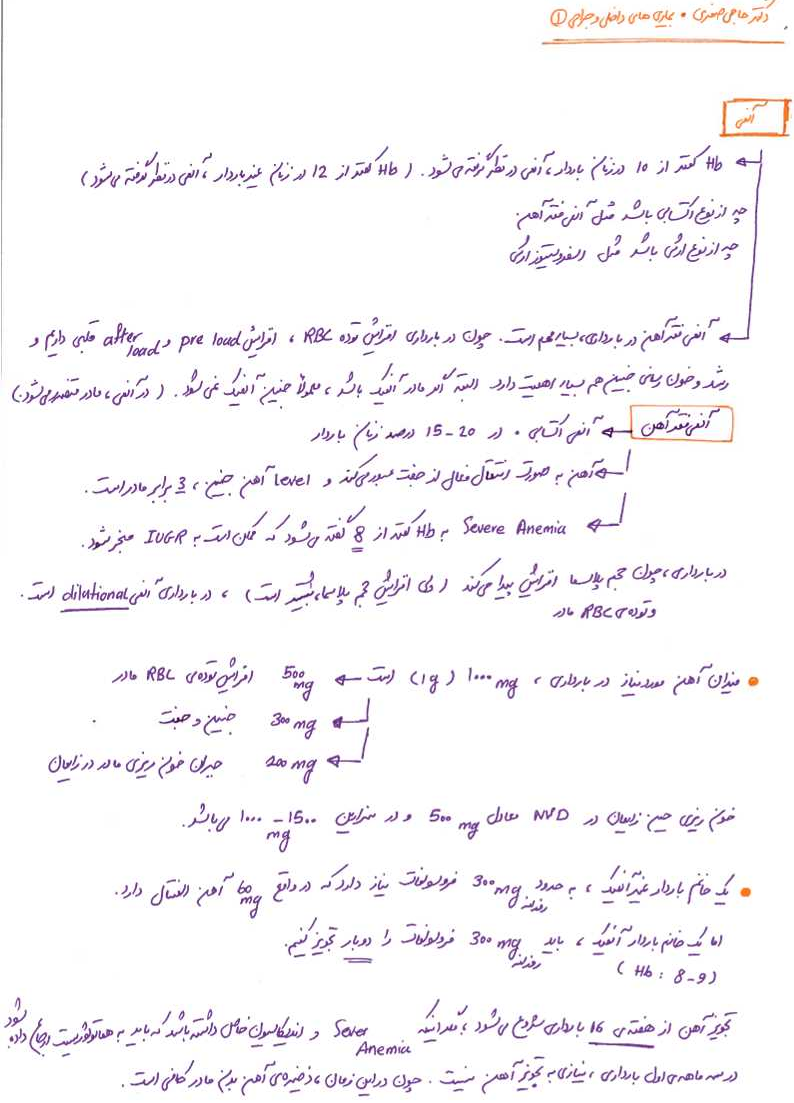 دکتر حاجی صفری • بیماری های داخلی و جراحی ①
آنمی
Hb کمتر از 10 در زنان باردار، آنمی در نظر گرفته می شود. ( Hb کمتر از 12 در زنان غیر باردار، آنمی در نظر گرفته می شود )
چه از نوع اکتسابی باشد مثل آنمی فقر آهن
چه از نوع ارثی باشد مثل اسفروسیتوز ارثی
آنمی فقر آهن در بارداری، بسیار مهم است. چون در بارداری افزایش توده RBC ، افزایش pre load و after load قلبی داریم و
رشد و خون رسانی جنین هم بسیار اهمیت دارد. البته اگر مادر آنمیک باشد، معمولاً جنین آنمیک نمی شود. ( در آنمی، مادر متضرر می شود.)
آنمی فقر آهن
آنمی اکتسابی • در 20-15 درصد زنان باردار
آهن به صورت انتقال فعال از جفت عبور می کند و level آهن جنین، 3 برابر مادر است.
Severe Anemia به Hb کمتر از 8 گفته می شود که ممکن است به IUGR منجر شود.
در بارداری، چون حجم پلاسما افزایش پیدا می کند ( ولی افزایش حجم پلاسما، بیشتر است ) ، در بارداری آنمی dilational است.
و توده ی RBC مادر
• میزان آهن مورد نیاز در بارداری، 1000 mg ( 1g ) است ← 500 mg افزایش توده ی RBC مادر
300 mg جنین و جفت
200 mg جبران خون ریزی مادر در زایمان
خون ریزی حین زایمان در NVD معادل 500 mg و در سزارین 1500 - 1000 mg می باشد.
• یک خانم باردار غیر آنمیک، به حدود 300 mg روزانه فروسولفات نیاز دارد که در واقع 60 mg آهن المنتال دارد.
اما یک خانم باردار آنمیک، باید 300 mg روزانه فروسولفات را دو بار تجویز کنیم.
( Hb : 8-9 )
تجویز آهن از هفته ی 16 بارداری شروع می شود، مگر اینکه Sever Anemia و اندیکاسیون خاص داشته باشد که باید به هماتولوژیست ارجاع داده شود
در سه ماهه ی اول بارداری، نیازی به تجویز آهن نیست. چون در این زمان، ذخیره ی آهن بدن مادر کافی است.